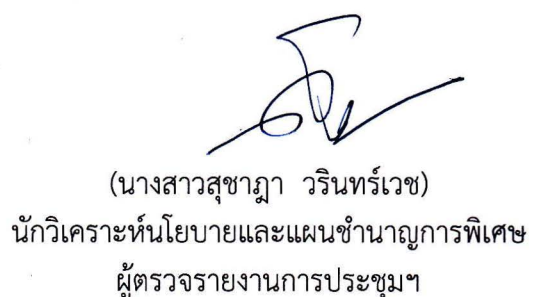 (นางสาวสุชาฎา วรินทร์เวช)
นักวิเคราะห์นโยบายและแผนชำนาญการพิเศษ
ผู้ตรวจรายงานการประชุมฯ